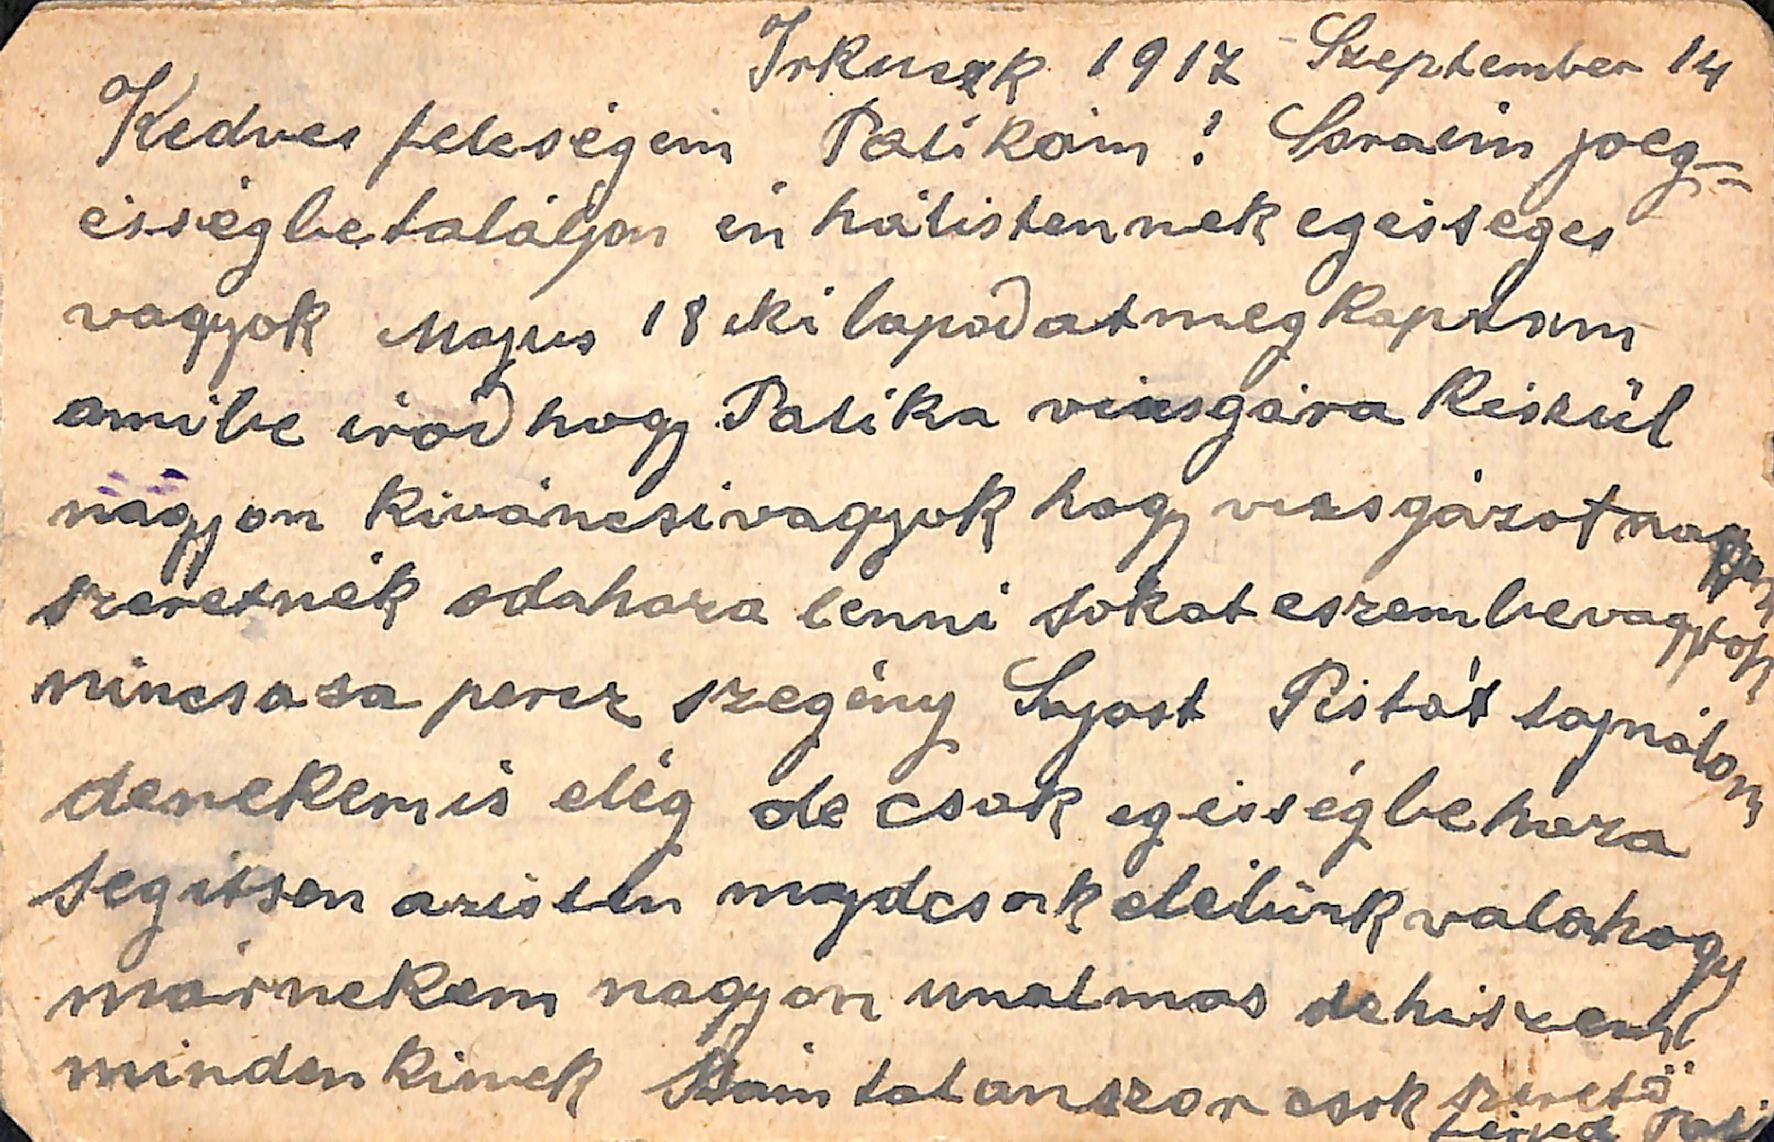 Irkuszk 1917 Szeptember 14
Kedves feleségem Palikám! Soraim joeg-
eisségbe találjon én hálistennek egeisseges
vagyok Majus 18 iki lapodat megkaptam
amibe irod hogy Palika vizsgára készül
nagyon kiváncsivagyok hogy vizsgázot nagyon
szeretnék odahaza lenni sokat eszembevagytok
nincsaza percz szegény Lajost Pistát sajnálom
denekemis elég de csak egeisségbe haza
segitsen azisten majdcsak elélünk valahogy
márnekem nagyon unalmas dehiszem
mindenkinek Számtalanszor csok szerető
férjed Pali